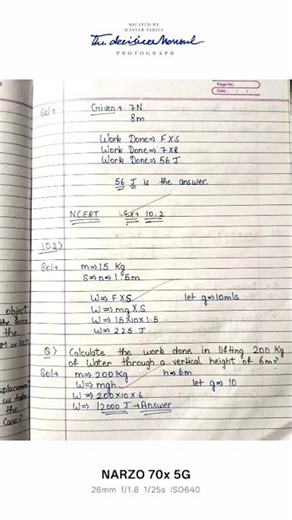 CREATED BY
MASTER SERIES
The decisive Moment
PHOTOGRAPH
Page No.
Date
Sol→ Given→ 7N
8m
Work Done⇒ F×S
Work Done⇒ 7×8
Work Done⇒ 56 J
56 J is the answer.
NCERT Ex→ 10.2
10.2)
Sol→ m⇒15 Kg
S⇒h⇒1.5m
W⇒ F×S let g⇒10m/s
W⇒ mg×S
W⇒ 15×10×1.5
W⇒ 225 J
Q) Calculate the work done in lifting 200 Kg
of Water through a vertical height of 6m?
Sol→ m⇒200Kg h⇒6m
W⇒ mgh let g⇒10
W⇒ 200×10×6
W⇒ 12000 J→Answer
object
the
take
the
Case
NARZO 70x 5G
26mm f/1.8 1/25s ISO640